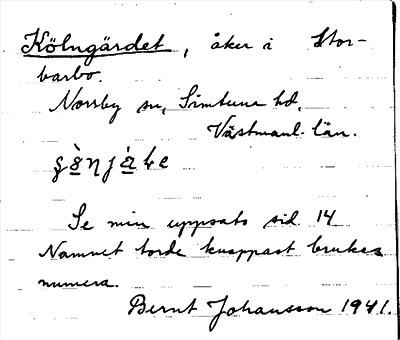 Kölngärdet, åker i Stor-
barbo.
Norrby sn, Simtuna hd,
Västmanl. län.
Se min uppsats sid 14
Namnet torde knappast brukas
numera.
Bernt Johansson 1941.